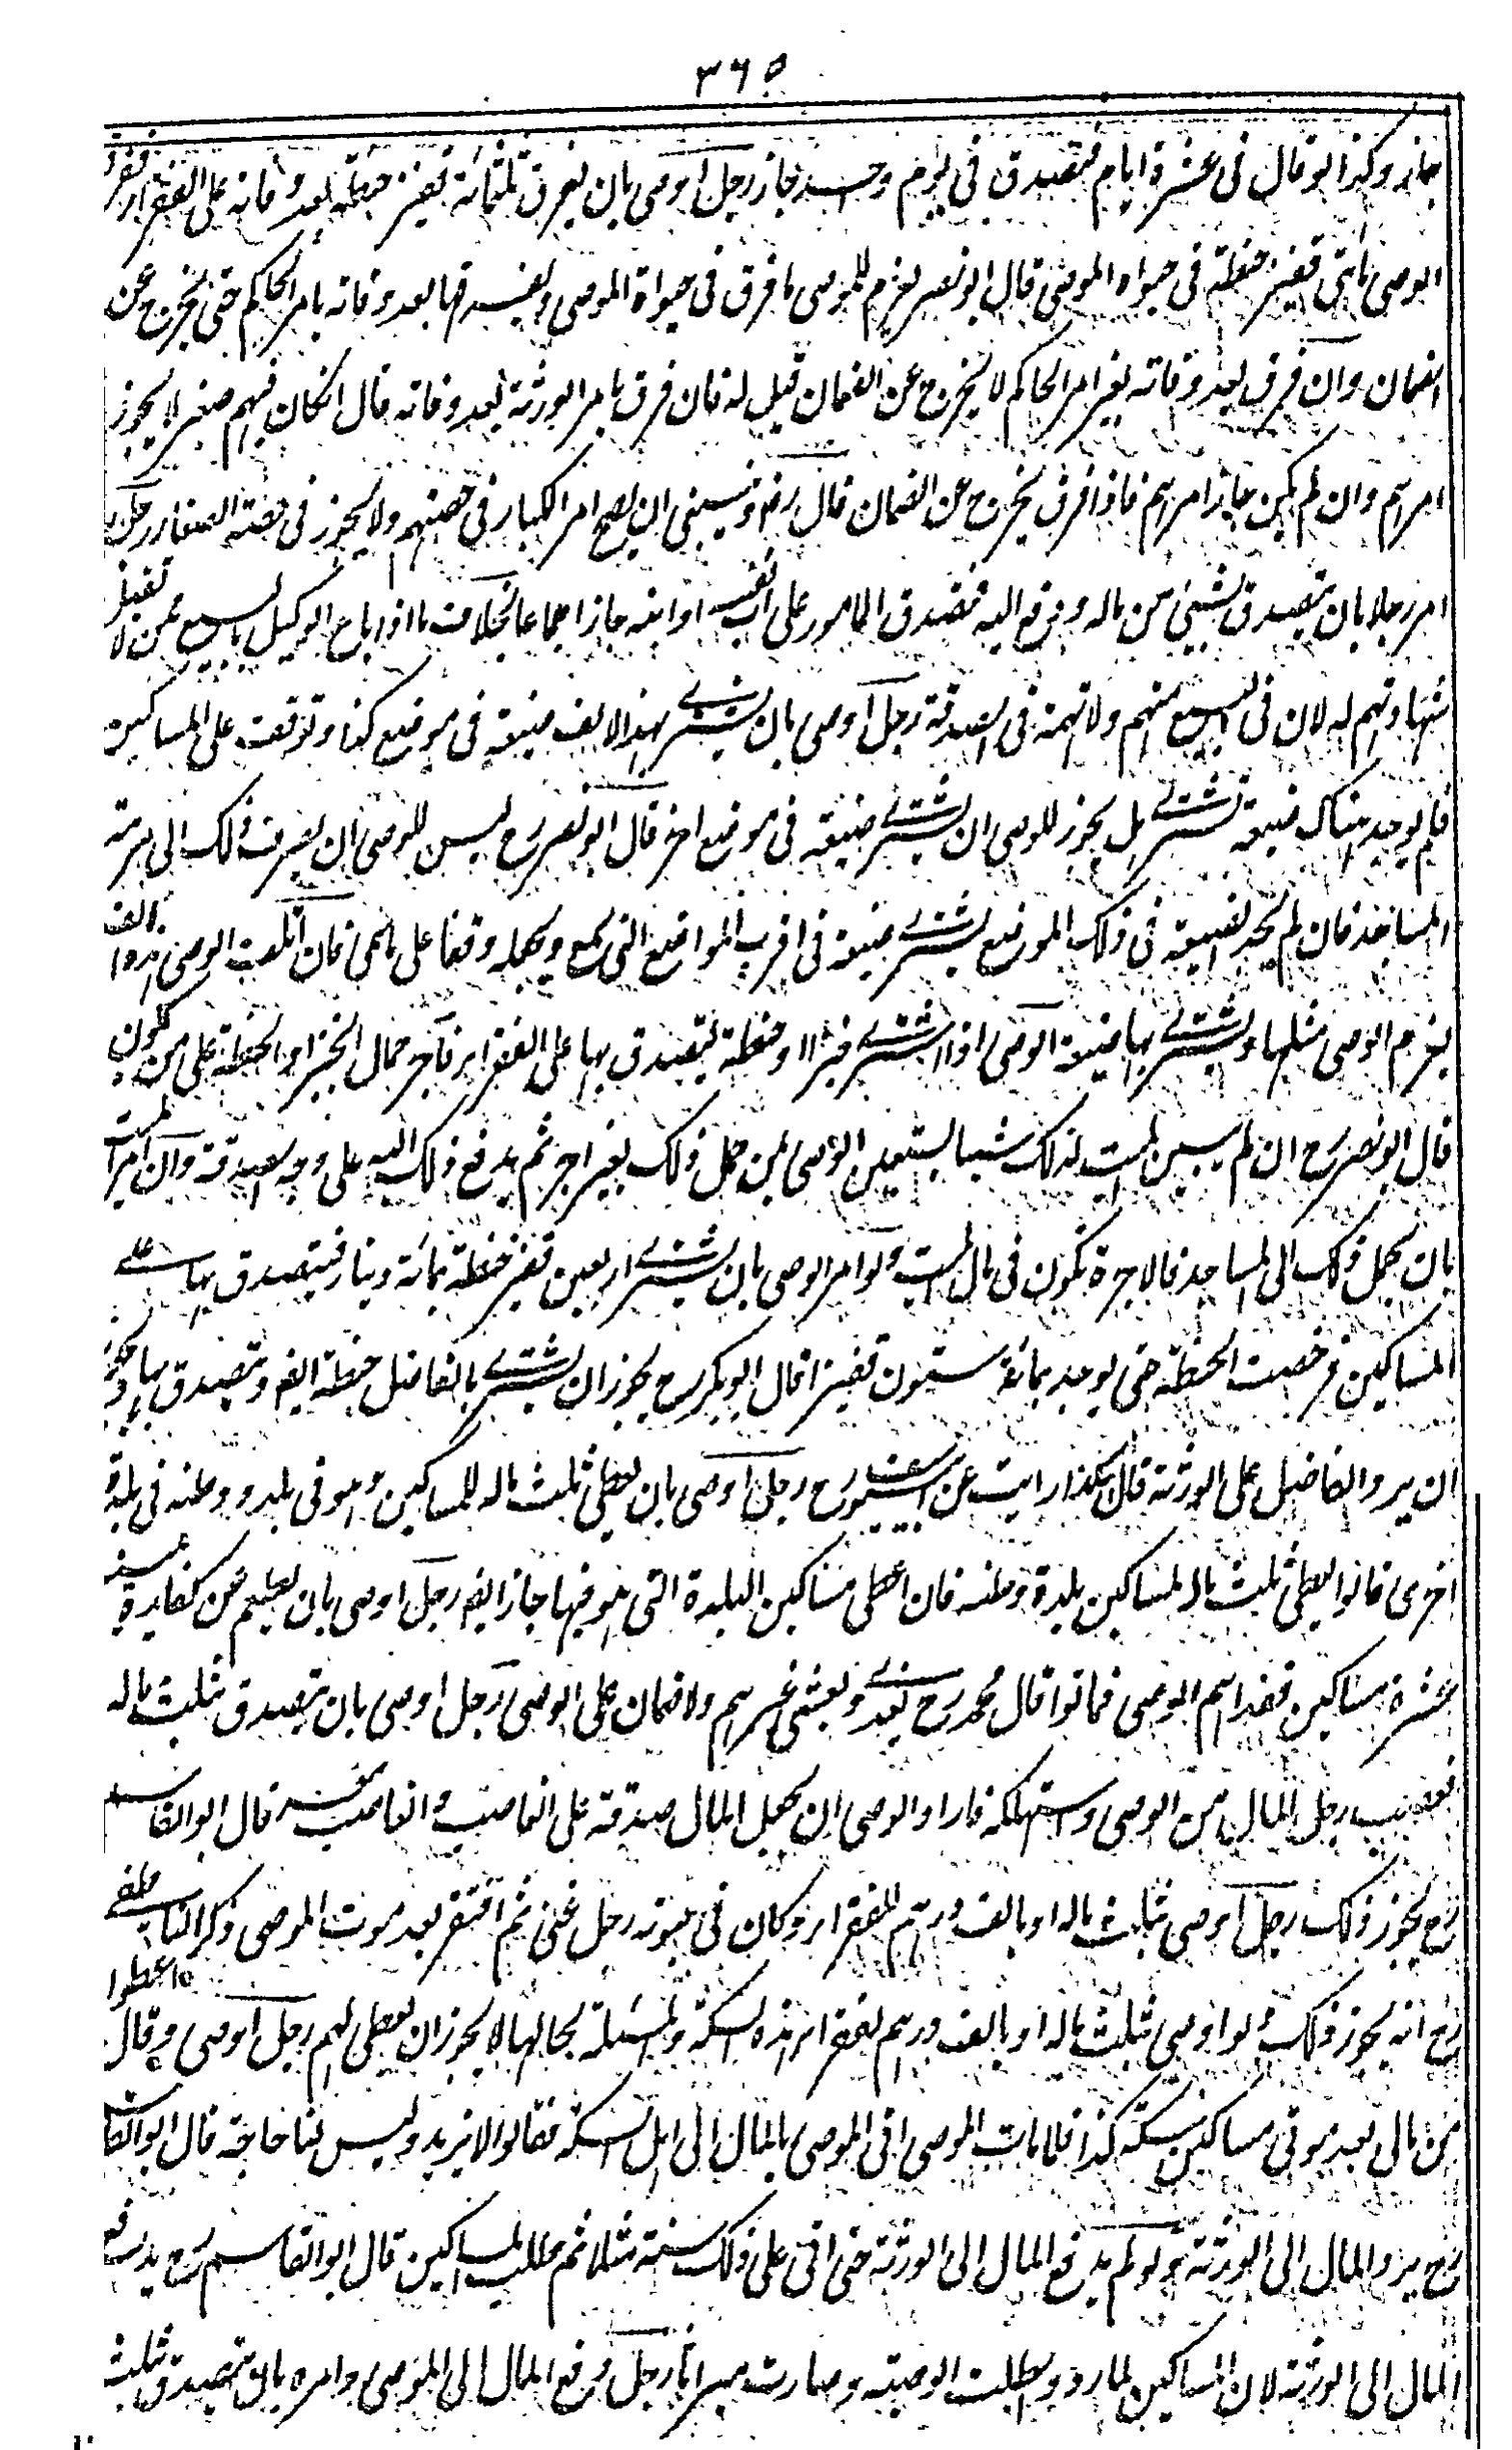 ٣٦٥
جاز وكذا لو قال فى عشرة ايام فتصدق فى يوم واحد جاز رجل اوصى بان يفرق ثلثمائة قفيز حنطة بعد وفاته على الفقراء ففرق
الوصى مائتى قفيز حنطة فى حيواة الموصى قال ابو نصر يغرم الوصى ما فرق فى حيواة الموصى ويفرقها بعد وفاته بامر الحاكم حتى يخرج عن
الضمان وان فرق بعد وفاته بغير امر الحاكم لا يخرج عن الضمان قيل له فان فرق بامر الورثة بعد وفاته قال ان كان فيهم صغير لا يجوز
امرهم وان لم يكن جاز امرهم فاذا فرق يخرج عن الضمان قال رض وينبغى ان يصح امر الكبار فى حصتهم ولا يجوز فى حصة الصغار رجل
امر رجلا بان يتصدق بشئ من ماله ودفع اليه فتصدق المامور على اب نفسه او ابنه جاز اجماعا بخلاف ما اذا باع الوكيل بالبيع ممن لا تقبل
شهادتهم له لان فى البيع منهم ولا تهمة فى الصدقة رجل اوصى بان يشترى بهذا الالف ضيعة فى موضع كذا وتوقف على المساكين
فلم يوجد هناك ضيعة تشترى هل يجوز للوصى ان يشترى ضيعة فى موضع اخر قال ابو نصر رح ليس للوصى ان يصرف ذلك الى مرمة
المساجد فان لم يجد الضيعة فى ذلك الموضع يشترى ضيعة فى اقرب المواضع التى سمى ويجعله وقفا على ما سمى فان اتلف الوصى هذه الالف
يغرم الوصى مثلها ويشترى بها ضيعة الوصى اذا اشترى خبزا او حنطة ليتصدق بها على الفقراء فاجر حمال الخبز او الحنطة على من يكون
قال ابو نصر رح ان لم يبين الميت لذلك شيئا يستعين الوصى بمن حمل ذلك بغير اجر ثم يدفع ذلك اليه على وجه الصدقة وان امر الميت
بان يحمل ذلك الى المساجد فالاجرة تكون فى مال الميت ولو امر الوصى بان يشترى اربعين قفيز حنطة بمائة دينار فيتصدق بها على
المساكين فرخصت الحنطة حتى يوجد بمائة ستون قفيزا قال ابو بكر رح يجوز ان يشترى بالفاضل حنطة ايضا ويتصدق بها ويجوز
ان يرد الفاضل على الورثة قال هكذا رايت عن ابى يوسف رح رجل اوصى بان يعطى ثلث ماله للمساكين وهو فى بلد ووطنه فى بلدة
اخرى قالوا يعطى ثلث ماله لمساكين بلدة وطنه فان اعطى مساكين البلدة التى هو فيها جاز ايضا رجل اوصى بان يطعم عن كفارة يمينه
عشرة مساكين فغداهم الوصى فماتوا قال محمد رح يغدى ويعشى غيرهم ولا ضمان على الوصى رجل اوصى بان يتصدق بثلث ماله
فغصب رجل المال من الوصى واستهلكه فاراد الوصى ان يجعل المال صدقة على الغاصب والغاصب معسر قال ابو القاسم
رح يجوز ذلك رجل اوصى بثلث ماله او بالف درهم للفقراء وكان فى بيوته رجل غنى ثم افتقر بعد موت الموصى ذكر الناطفى
رح انه يجوز ذلك ولو اوصى بثلث ماله او بالف درهم لفقراء هذه السكة والمسئلة بحالها لا يجوز ان يعطى لهم رجل اوصى وقال اعطوا
من مالى بعد موتى مساكين سكة كذا فلما مات الموصى اتى الموصى بالمال الى اهل السكة فقالوا لا نريد وليس لنا حاجة قال ابو القاسم
رح يرد المال الى الورثة ولو لم يدفع المال الى الورثة حتى اتى على ذلك سنة مثلا ثم طلب المساكين قال ابو القاسم رح يدفع
المال الى الورثة لان المساكين لما ردوا بطلت الوصية وصارت ميراثا رجل دفع المال الى الموصى وامره بان يتصدق بثلث